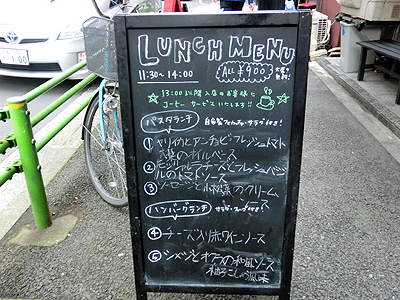 LUNCH MENU
11:30~14:00
ALL ¥900
13:00以降入店のお客様に
コーヒーサービスいたします!!
パスタランチ
自家製フォカッチャ・サラダ付き!
① ヤリイカとアンチョビ・フレッシュトマト
のオイルベース
② モッツァレラチーズとフレッシュバジ
ルのトマトソース
③ ソーセージと小松菜のクリーム
ハンバーグランチ
サラダ・スープ付き!
④ チーズ入り赤ワインソース
⑤ シメジとオクラの和風ソース
柚子こしょう風味